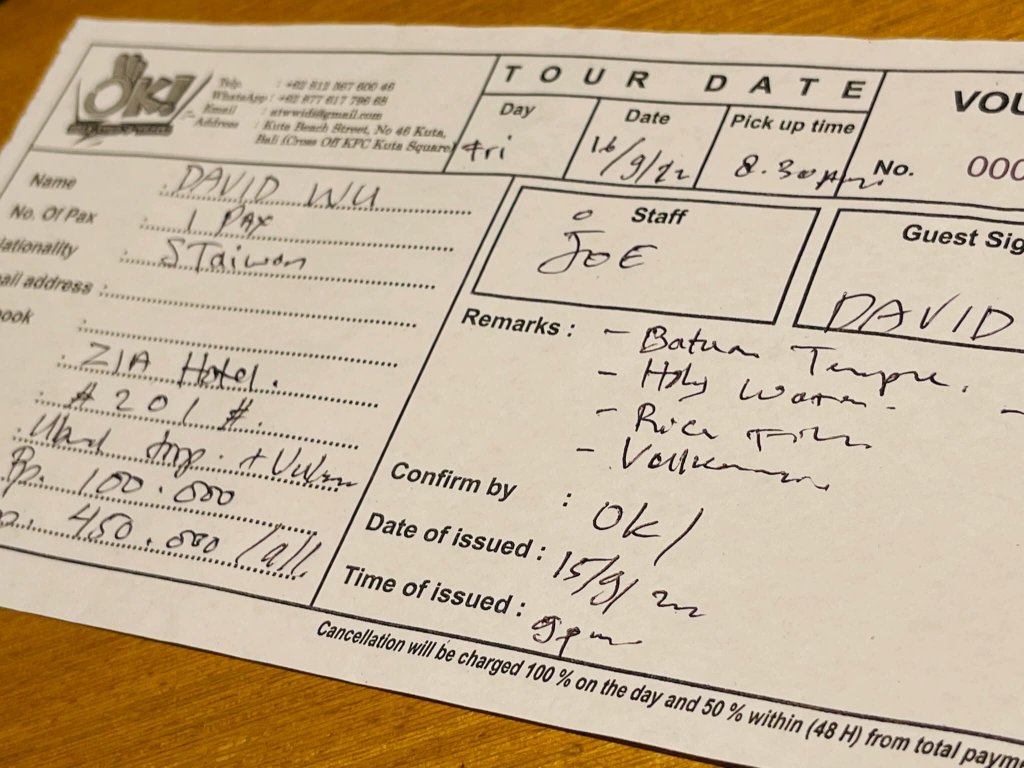 OK!
Telp. : +62 812 367 600 46
WhatsApp : +62 877 617 796 68
Email : @gmail.com
Address : Kuta Beach Street, No 46 Kuta,
Bali (Cross Off KFC Kuta Square)
TOUR DATE
Day
Fri
Date
16/9/22
Pick up time
8.30
VOU
No. 000
Name : DAVID WU
No. Of Pax : 1 PAX
ationality : Taiwan
ail address :
ook :
: ZIA Hotel.
: #201#.
: Ubud trip. +
Rp. 100.000
p. 450.000 /all
Staff
JOE
Guest Sig
DAVID
Remarks : - Batuan Temple.
- Holy Water.
- Rice
-
Confirm by : OK!
Date of issued : 15/9/22
Time of issued : 9pm
Cancellation will be charged 100 % on the day and 50 % within (48 H) from total paym